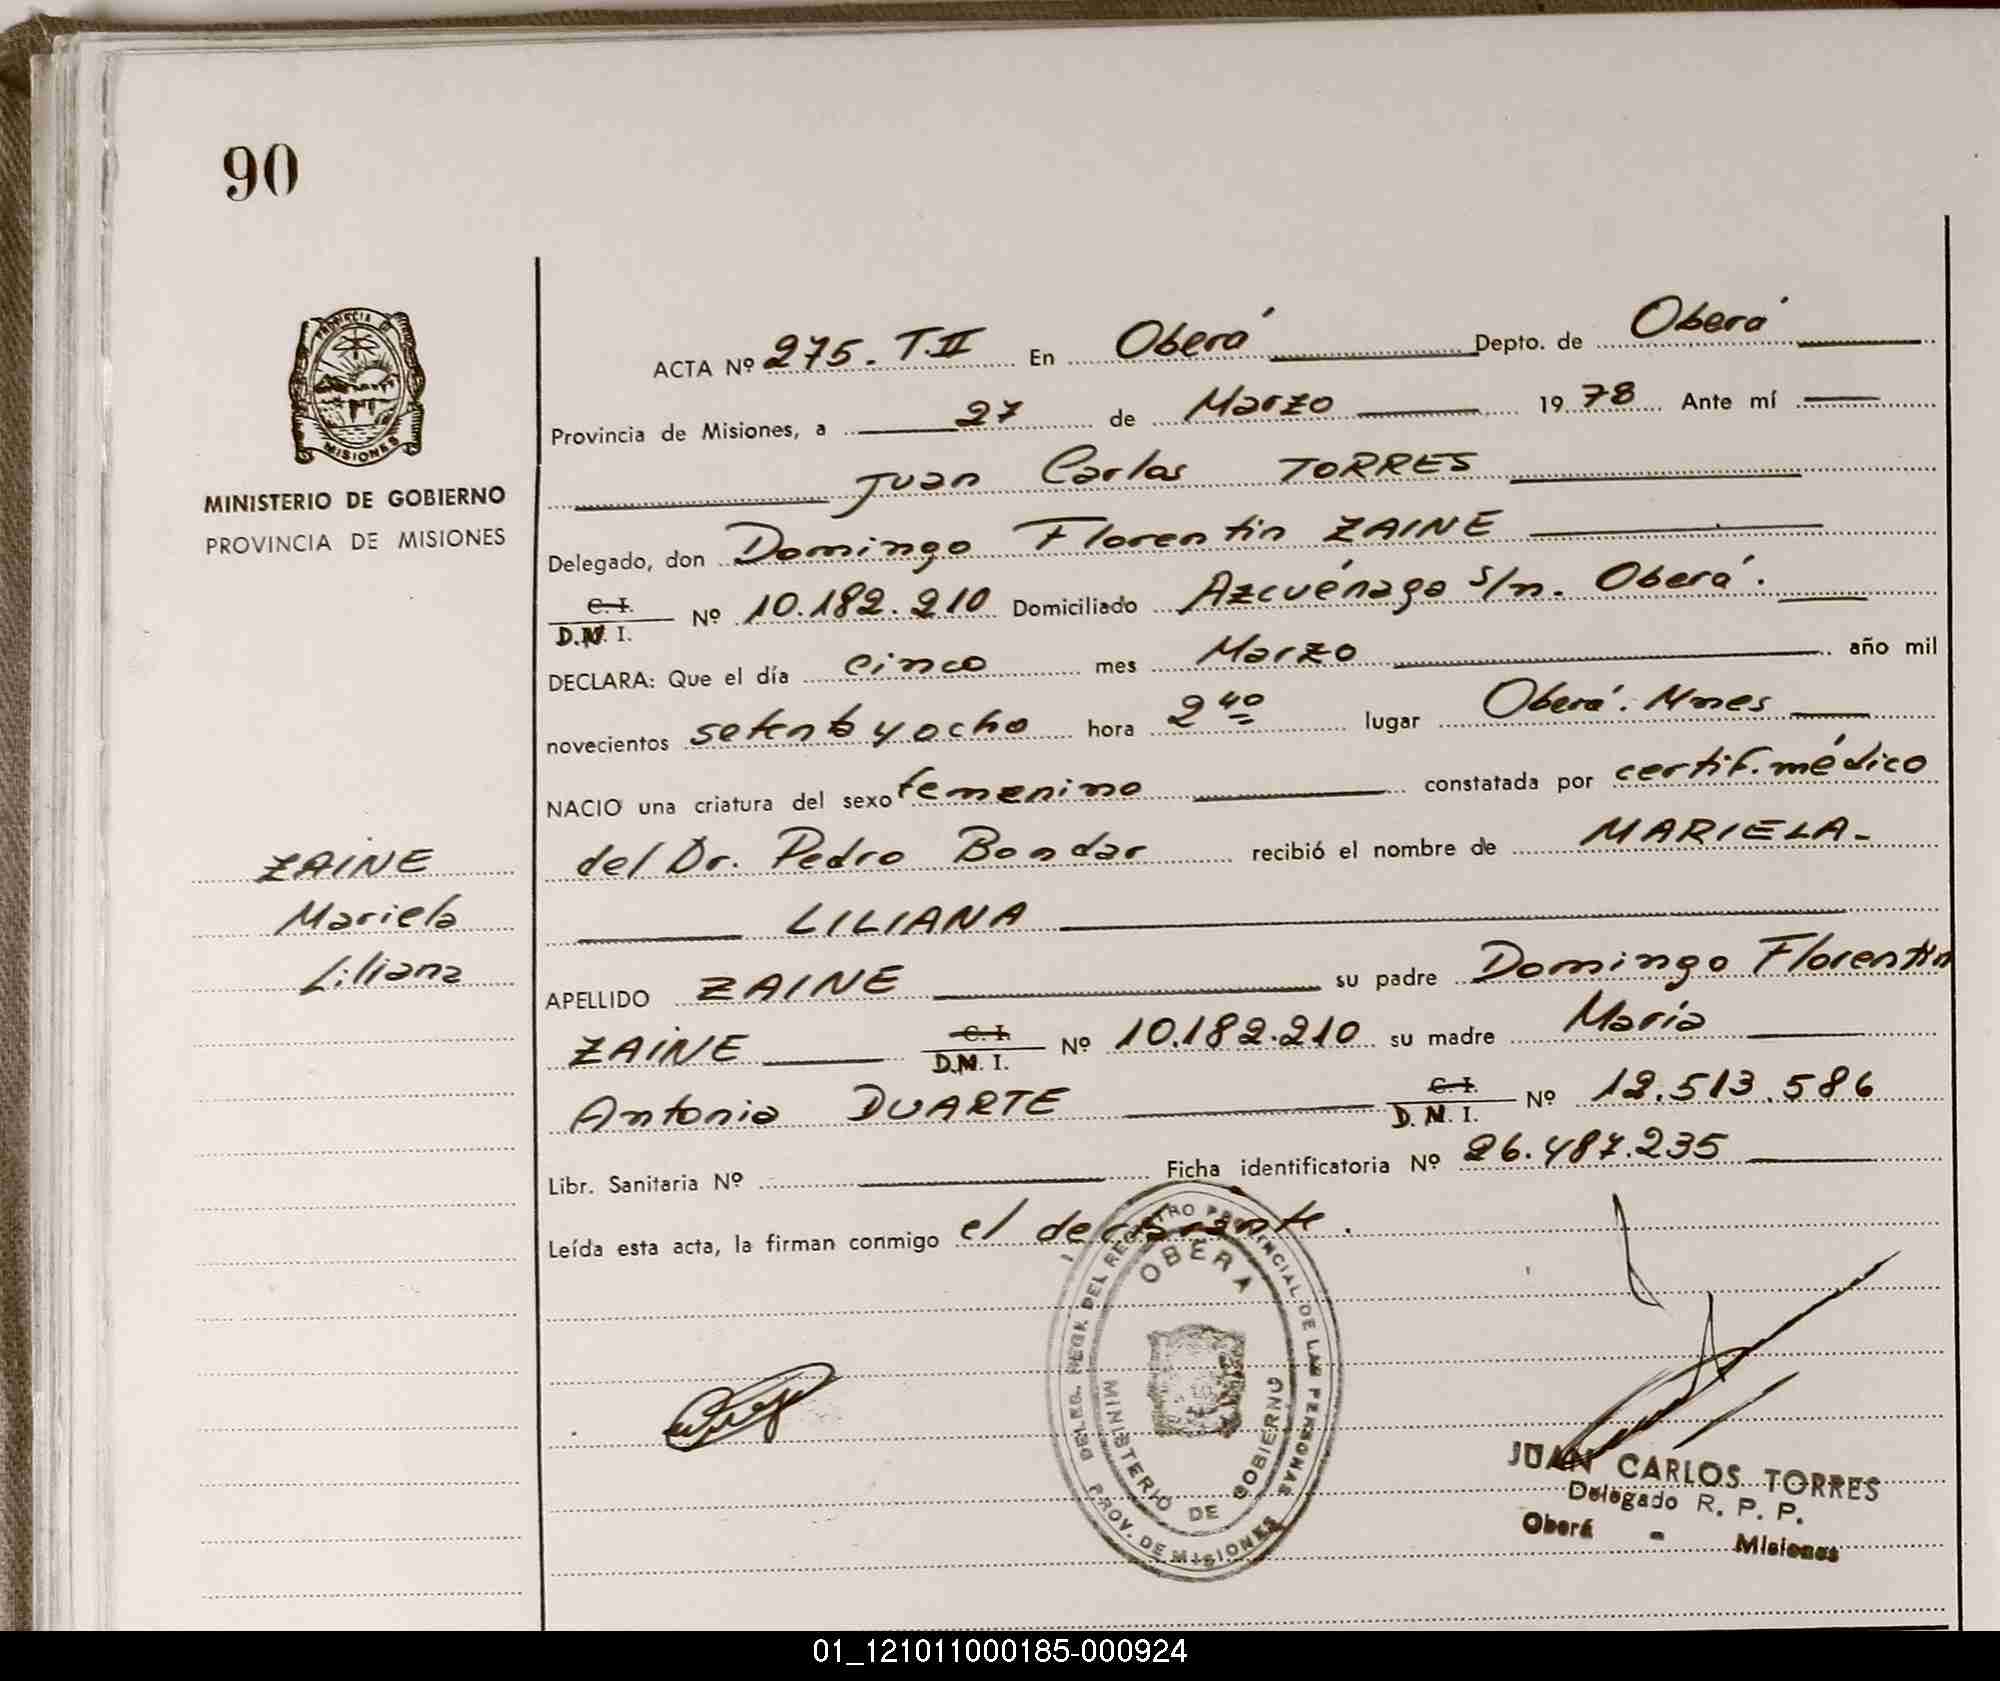 90
PROVINCIA DE
MISIONES
MINISTERIO DE GOBIERNO
PROVINCIA DE MISIONES
ACTA Nº 275. T.II En Oberá Depto. de Oberá
Provincia de Misiones, a 27 de Marzo 1978 Ante mí
Juan Carlos TORRES
Delegado, don Domingo Florentin ZAINE
C. I.
D.N. I. Nº 10.182.210 Domiciliado Azcuénaga s/n. Oberá.
DECLARA: Que el día cinco mes Marzo año mil
novecientos setenta y ocho hora 2 40 lugar Oberá. Mnes
NACIO una criatura del sexo femenino constatada por certif. médico
del Dr. Pedro Bondar recibió el nombre de MARIELA-
LILIANA
ZAINE
Mariela
Liliana
APELLIDO ZAINE su padre Domingo Florentin
ZAINE C. I.
D.N. I. Nº 10.182.210 su madre María
Antonia DUARTE C. I.
D. N. I. Nº 12.513.586
Libr. Sanitaria Nº Ficha identificatoria Nº 26.487.235
Leída esta acta, la firman conmigo el declarante.
DELEG. REGN. DEL REGISTRO PROVINCIAL DE LAS PERSONAS
OBERA
MINISTERIO DE GOBIERNO
PROV. DE MISIONES
JUAN CARLOS TORRES
Delegado R. P. P.
Oberá - Misiones
01_121011000185-000924